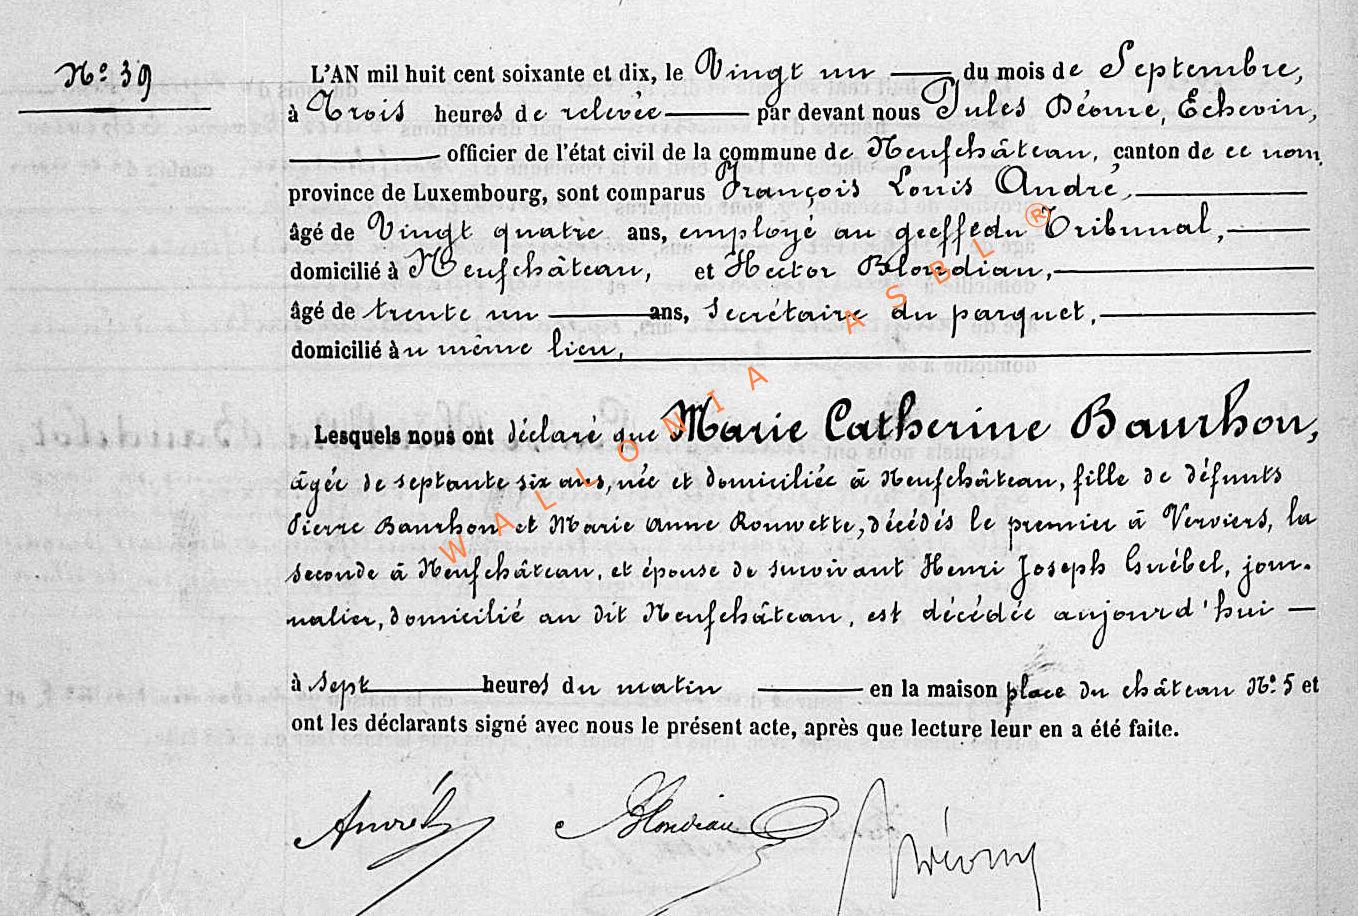 Nº 39
L'AN mil huit cent soixante et dix, le Vingt un du mois de Septembre,
à Trois heures de relevée par devant nous Jules Déome, Echevin,
officier de l'état civil de la commune de Neufchâteau, canton de ce nom,
province de Luxembourg, sont comparus François Louis André,
âgé de Vingt quatre ans, employé au greffe du Tribunal,
domicilié à Neufchâteau, et Hector Blondiau,
âgé de trente un ans, secrétaire du parquet,
domicilié au même lieu,
Lesquels nous ont déclaré que Marie Catherine Baurhon,
âgée de septante six ans, née et domiciliée à Neufchâteau, fille de défunts
Pierre Baurhon et Marie Anne Rouwette, décédés le premier à Verviers, la
seconde à Neufchâteau, et épouse de survivant Henri Joseph Guébel, jour-
nalier, domicilié au dit Neufchâteau, est décédée aujourd'hui
à sept heures du matin en la maison place du château Nº 5 et
ont les déclarants signé avec nous le présent acte, après que lecture leur en a été faite.
André Blondiau Déome
WALLONIA ASBL ®